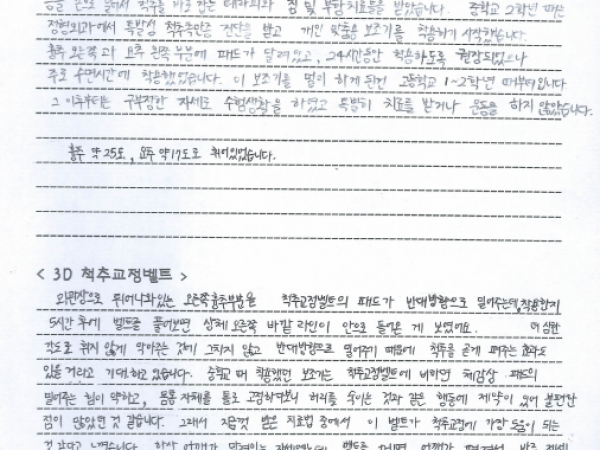 등을 손으로 눌러서 척추를 바로 펴는 마사지와 침 및 부항치료들을 받았습니다. 중학교 2학년 때는
정형외과에서 특발성 척추측만증 진단을 받고 개인 맞춤용 보조기를 착용하기 시작했습니다.
흉추 오른쪽과 요추 왼쪽 부분에 패드가 달려있고, 24시간동안 착용하도록 권장되었으나
주로 수면시간에 착용했었습니다. 이 보조기를 멀리 하게 된건 고등학교 1~2학년 때부터입니다
그 이후부터는 구부정한 자세로 수험생활을 하였고 특별히 치료를 받거나 운동을 하지 않았습니다.
흉추 약 25도, 요추 약 17도로 휘어있었습니다.
< 3D 척추교정벨트 >
외관상으로 튀어나와있는 오른쪽 흉추부분을 척추교정벨트의 패드가 반대방향으로 밀어주는데, 착용한지
5시간 후에 벨트를 풀어보면 상체 오른쪽 바깥 라인이 안으로 들어온 게 보였어요. 더 심한
각도로 휘지 않게 막아주는 것에 그치지 않고 반대방향으로 밀어주기 때문에 척추를 곧게 펴주는 효과도
있을 거라고 기대하고 있습니다. 중학교 때 착용했던 보조기는 척추교정벨트에 비하면 체감상 패드의
밀어주는 힘이 약하고, 몸통 자체를 통으로 고정하다보니 허리를 숙이는 것과 같은 행동에 제약이 있어 불편한
점이 많았던 것 같습니다. 그래서 지금껏 받은 치료법 중에서 이 벨트가 척추교정에 가장 도움이 되는
것 같다고 느꼈습니다. 항상 어깨가